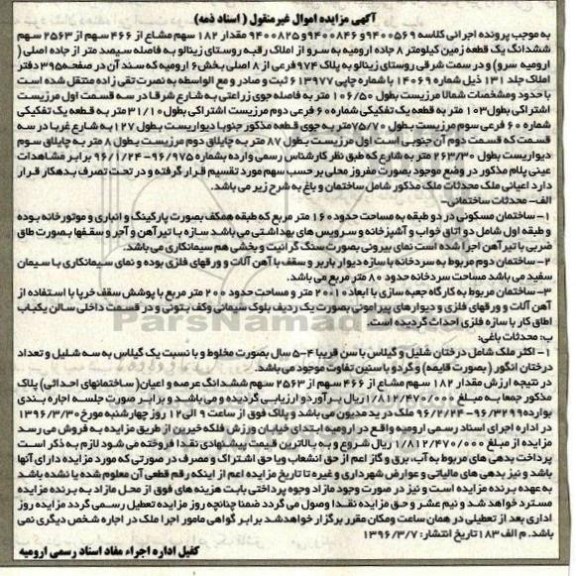 آگهی مزایده اموال غیرمنقول ( اسناد ذمه)
به موجب پرونده اجرائی کلاسه ۹۴۰۰۵۶۹ و ۹۴۰۰۸۴۶ و ۹۴۰۰۸۲۵ مقدار ۱۸۲ سهم مشاع از ۴۶۶ سهم از ۲۵۶۳ سهم
ششدانگ یک قطعه زمین کیلومتر ۸ جاده ارومیه به سرو از املاک رقبه روستای زینالو به فاصله سیصد متر از جاده اصلی (
ارومیه سرو) و در سمت شرقی روستای زینالو به پلاک ۹۷۴ فرعی از ۸ اصلی بخش ۶ ارومیه که سند آن در صفحه ۳۹۵ دفتر
املاک جلد ۱۳۱ ذیل شماره ۱۴۰۶۹ با شماره چاپی ۶۱۳۹۷۷ ثبت و صادر و مع الواسطه به نصرت تقی زاده منتقل شده است
با حدود ومشخصات شمالا مرزیست بطول ۱۰۶/۵۰ متر به فاصله جوی زراعتی به شارع شرقا در سه قسمت اول مرزیست
اشتراکی بطول ۱۰۳ متر به قطعه یک تفکیکی شماره ۶۰ فرعی دوم مرزیست اشتراکی بطول ۳۱/۱۰ متر به قطعه یک تفکیکی
شماره ۶۰ فرعی سوم مرزیست بطول ۷۵/۷۰ متر به جوی قطعه مذکور جنوبا دیواریست بطول ۱۲۷ به شارع غربا در سه
قسمت که قسمت دوم آن جنوبی است اول مرزیست بطول ۸۷ متر به چاپلاق دوم مرزیست بطول ۸ متر به چاپلاق سوم
دیواریست بطول ۲۶۳/۳۰ متر به شارع که طبق نظر کارشناس رسمی وارده بشماره ۹۶/۹۷۵-۹۶/۱/۲۴ برابر مشاهدات
عینی پلام مذکور در وضع موجود بصورت مفروز محلی بر حسب سهم مورد تقسیم قرار گرفته و در تحت تصرف بدهکار قرار
دارد اعیانی ملک محدثات ملک مذکور شامل ساختمان و باغ به شرح زیر می باشد.
الف- محدثات ساختمانی-
۱- ساختمان مسکونی در دو طبقه به مساحت حدود ۱۶۰ متر مربع که طبقه همکف بصورت پارکینگ و انباری و موتورخانه بوده
و طبقه اول شامل دو اتاق خواب و آشپزخانه و سرویس های بهداشتی می باشد سازه با تیرآهن و آجر و سقفها بصورت طاق
ضربی با تیرآهن اجرا شده است نمای بیرونی بصورت سنگ گرانیت و بخشی هم سیمانکاری می باشد.
۲- ساختمان دوم مربوط به سردخانه با سازه دیوار باربر و سقف با آهن آلات و ورقهای فلزی بوده و نمای سیمانکاری با سیمان
سفید می باشد مساحت سردخانه حدود ۸۰ متر مربع می باشد.
۳- ساختمان مربوط به کارگاه جعبه سازی با ابعاد ۱۰*۲۰ متر و مساحت حدود ۲۰۰ متر مربع با پوشش سقف خرپا با استفاده از
آهن آلات و ورقهای فلزی و دیوارهای پیرامونی بصورت یک ردیف بلوک سیمانی وکف بتونی و در قسمت داخلی سالن یکباب
اطاق کار با سازه فلزی احداث گردیده است.
ب: محدثات باغی:
۱- اکثر ملک شامل درختان شلیل و گیلاس با سن قریبا ۴-۵ سال بصورت مخلوط و با نسبت یک گیلاس به سه شلیل و تعداد
درختان انگور ( بصورت قایمه) و گردو با سنین تفاوت موجود می باشد.
در نتیجه ارزش مقدار ۱۸۲ سهم مشاع از ۴۶۶ سهم از ۲۵۶۳ سهم ششدانگ عرصه و اعیان( ساختمانهای احداثی) پلاک
مذکور جمعا به مبلغ ۱/۸۱۲/۴۷۰/۰۰۰ ریال برآورد و ارزیابی گردیده و می باشد و برابر صورت جلسه اجاره بندی
بوارده ۹۶/۳۲۹۹-۹۶/۲/۲۴ ملک در ید مدیون می باشد و پلاک فوق از ساعت ۹ الی ۱۲ روز چهارشنبه مورخ ۱۳۹۶/۳/۳۰
در اداره اجرای اسناد رسمی ارومیه واقع در ارومیه ابتدای خیابان ورزش فلکه خیرین از طریق مزایده به فروش می رسد
مزایده از مبلغ ۱/۸۱۲/۴۷۰/۰۰۰ ریال شروع و به بالاترین قیمت پیشنهادی نقدا فروخته می شود لازم به ذکر است
پرداخت بدهی های مربوط به آب، برق و گاز اعم از حق انشعاب ویا حق اشتراک و مصرف در صورتی که مورد مزایده دارای آنها
باشد و نیز بدهی های مالیاتی و عوارض شهرداری و غیره تا تاریخ مزایده اعم از اینکه رقم قطعی آن معلوم شده یا نشده باشد
به عهده برنده مزایده است و نیز در صورت وجود مازاد وجوه پرداختی بابت هزینه های فوق از محل مازاد به برنده مزایده
مسترد خواهد شد و نیم عشر و حق مزایده نقدا وصول می گردد ضمنا چنانچه روز مزایده تعطیل رسمی گردد مزایده روز
اداری بعد از تعطیلی در همان ساعت ومکان مقرر برگزار خواهدشد برابر گواهی مامور اجرا ملک در اجاره شخص دیگری نمی
باشد. م الف ۱۸۳ تاریخ انتشار: ۱۳۹۶/۳/۷
کفیل اداره اجراء مفاد اسناد رسمی ارومیه